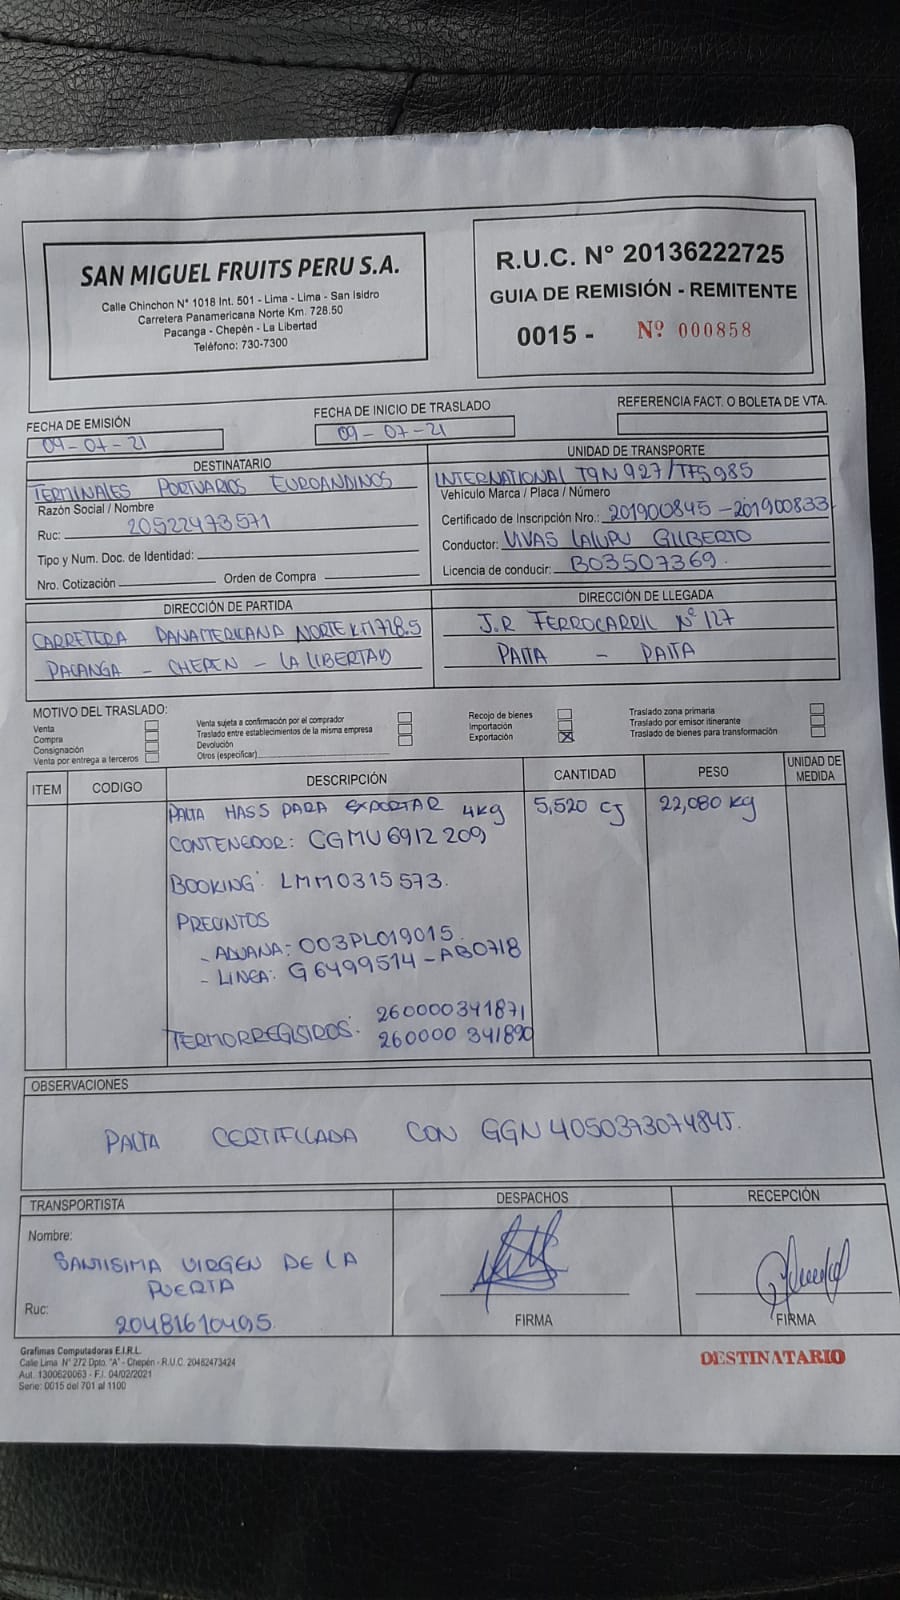 SAN MIGUEL FRUITS PERU S.A.
Calle Chinchon N° 1018 Int. 501 - Lima - Lima - San Isidro
Carretera Panamericana Norte Km. 728.50
Pacanga - Chepén - La Libertad
Teléfono: 730-7300
R.U.C. N° 20136222725
GUIA DE REMISIÓN - REMITENTE
0015 - Nº 000858
FECHA DE EMISIÓN
09-07-21
FECHA DE INICIO DE TRASLADO
09-07-21
REFERENCIA FACT. O BOLETA DE VTA.
DESTINATARIO
TERMINALES PORTUARIOS EUROANDINOS
Razón Social / Nombre
Ruc: 20522473571
Tipo y Num. Doc. de Identidad:
Nro. Cotización Orden de Compra
UNIDAD DE TRANSPORTE
INTERNATIONAL T9N 927/TF5985
Vehículo Marca / Placa / Número
Certificado de Inscripción Nro.: 201900845-201900833
Conductor: VIVAS LALUPU GILBERTO
Licencia de conducir: B03507369.
DIRECCIÓN DE PARTIDA
CARRETERA PANAMERICANA NORTE KM 718.5
PACANGA - CHEPEN - LA LIBERTAD
DIRECCIÓN DE LLEGADA
J.R FERROCARRIL Nº 127
PAITA - PAITA
MOTIVO DEL TRASLADO:
Venta
Compra
Consignación
Venta por entrega a terceros
Venta sujeta a confirmación por el comprador
Traslado entre establecimientos de la misma empresa
Devolución
Otros (especificar)
Recojo de bienes
Importación
Exportación X
Traslado zona primaria
Traslado por emisor itinerante
Traslado de bienes para transformación
ITEM CODIGO DESCRIPCIÓN CANTIDAD PESO UNIDAD DE MEDIDA
PALTA HASS PARA EXPORTAR 4kg 5,520 CJ 22,080 kg
CONTENEDOR: CGMU 6912 209
BOOKING: LMM0315573.
PRECINTOS
- ADUANA: 003PL019015.
- LINEA: G6499514-AB0718
TERMORREGISTROS: 260000341871
260000 341890
OBSERVACIONES
PALTA CERTIFICADA CON GGN 4050373074845.
TRANSPORTISTA
Nombre:
SANTISIMA VIRGEN DE LA
PUERTA
Ruc: 20481610495
DESPACHOS
FIRMA
RECEPCIÓN
FIRMA
Grafimas Computadoras E.I.R.L.
Calle Lima N° 272 Dpto. "A" - Chepén - R.U.C. 20482473424
Aut. 1300620063 - F.I. 04/02/2021
Serie: 0015 del 701 al 1100
DESTINATARIO